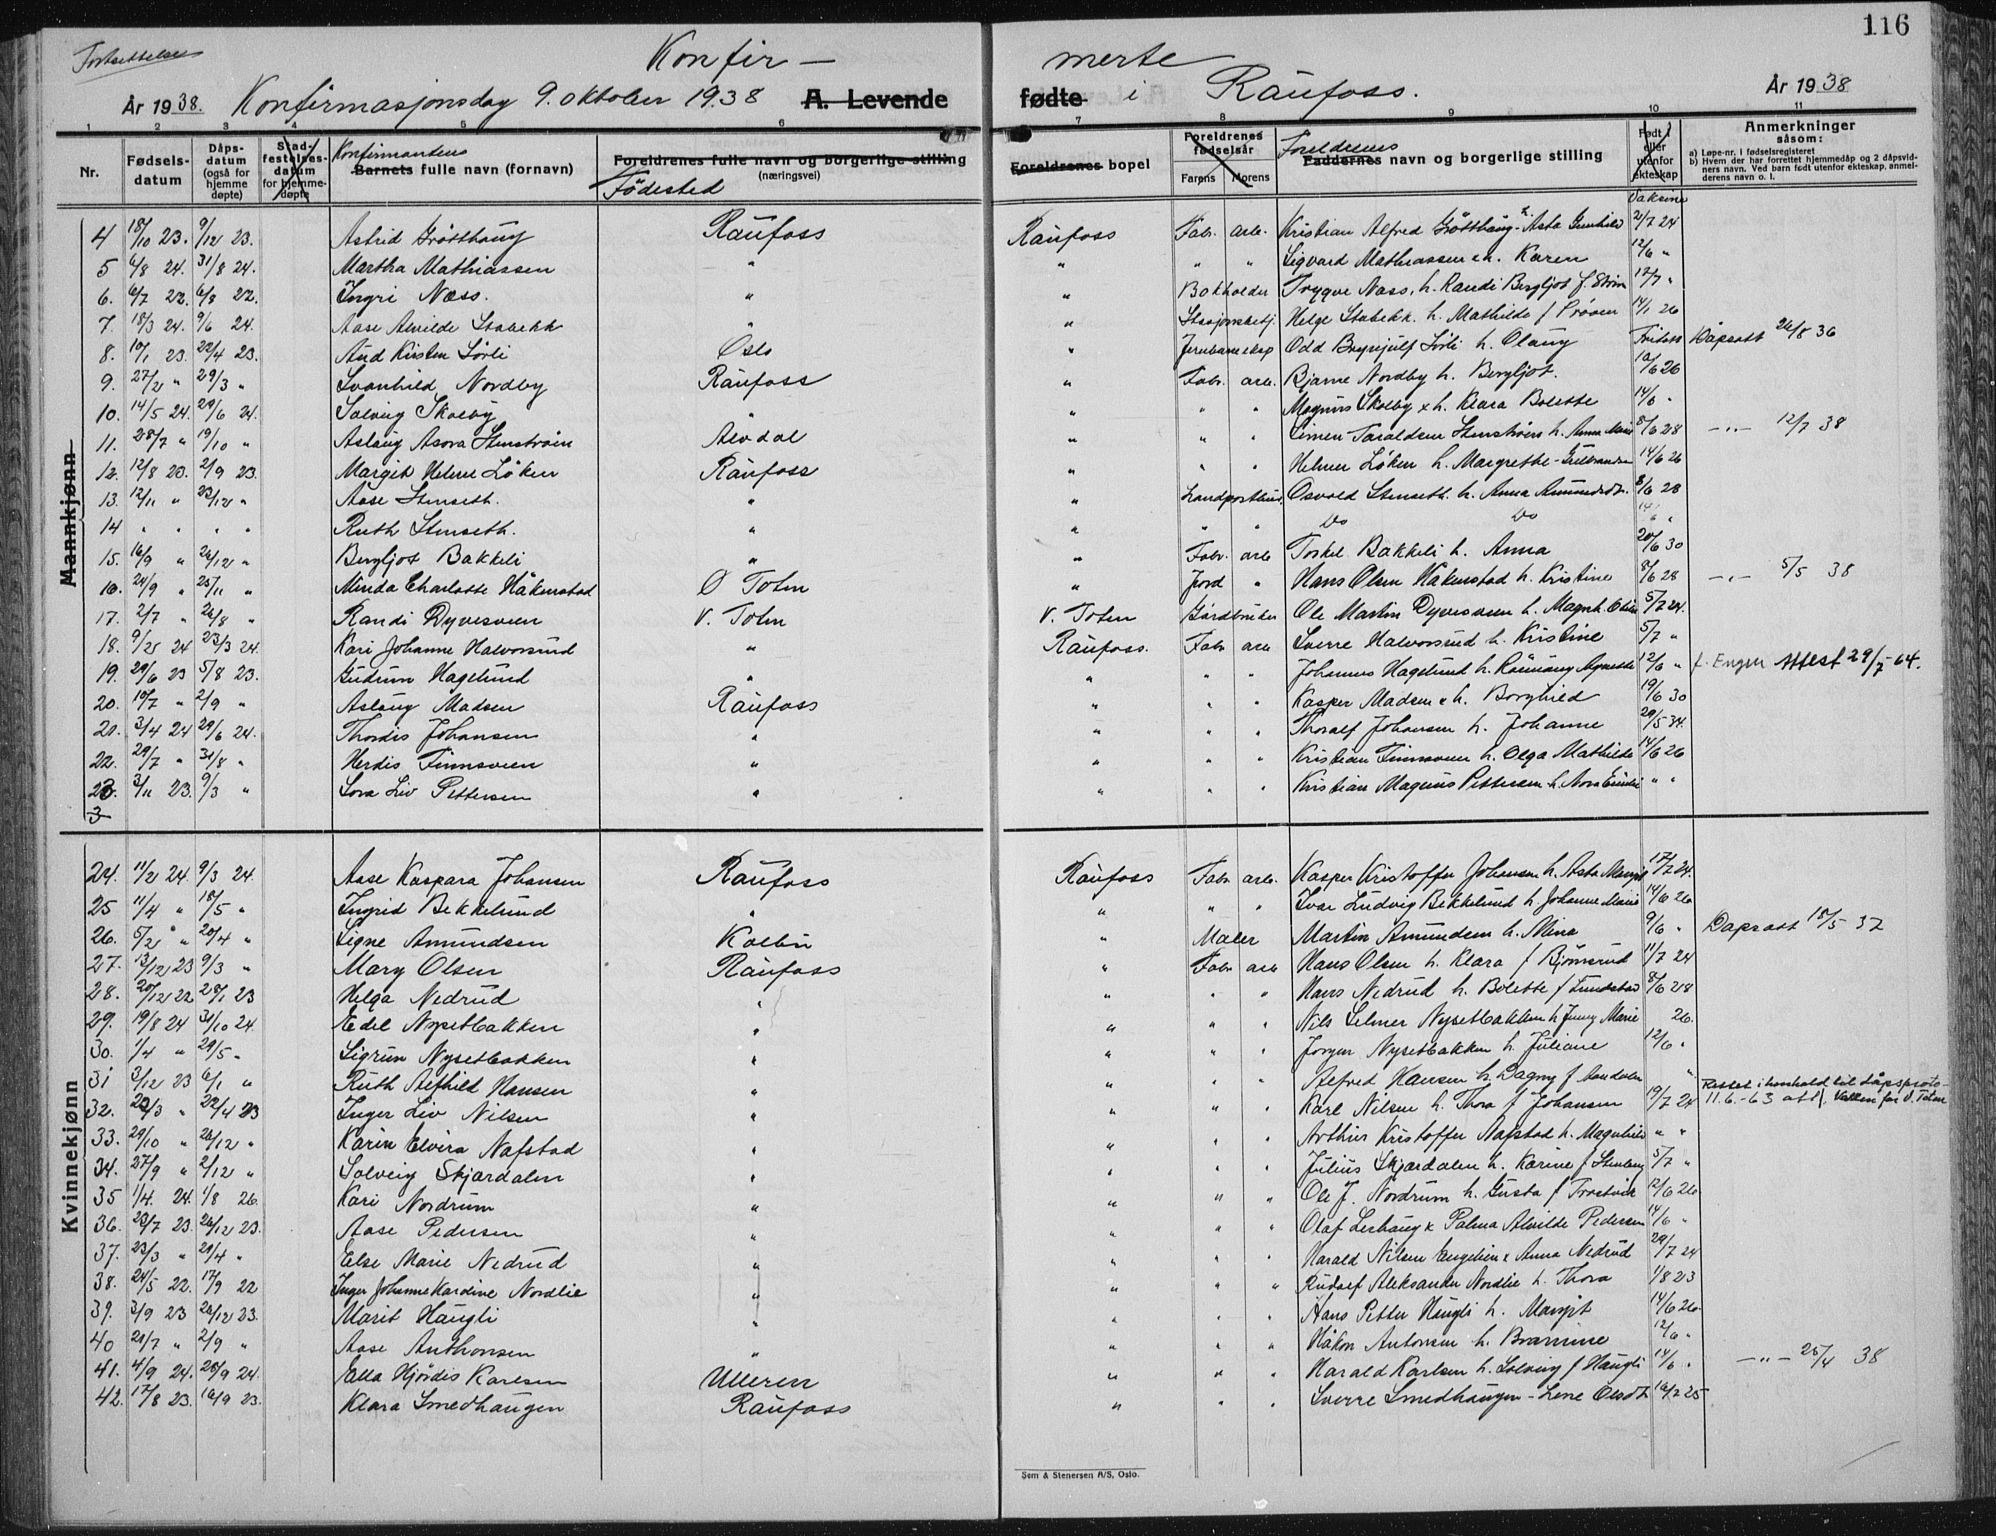 116
Fortsettelse
Konfir - merte
År 1938. Konfirmasjonsdag 9. oktober 1938 A. Levende fødte i Raufoss. År 1938
1 2 3 4 5 6 7 8 9 10 11
Nr. Fødsels-datum Dåps-datum (også for hjemme døpte) Stad-festelses-datum for hjemme-døpte Konfirmantens Barnets fulle navn (fornavn) Foreldrenes fulle navn og borgerlige stilling (næringsvei) Fødested Foreldrenes bopel Foreldrenes fødselsår Farens Morens Foreldrenes Faddernes navn og borgerlig stilling Født i eller utenfor ekteskap Anmerkninger såsom:
a) Løpe-nr. i fødselsregisteret
b) Hvem der har forrettet hjemmedåp og 2 dåpsvidners navn. Ved barn født utenfor ekteskap, anmelderens navn o. l.
Vaksine
Mannkjønn
4 18/10 23. 9/12 23. Astrid Grøtthaug Raufoss Raufoss Fabr. arb. Kristian Alfred Grøtthaug - Asta Gunhild 2/7 24
5 6/8 24. 31/8 24. Martha Mathiassen " " " " Sigvard Mathiassen x h. Karen 12/6 "
6. 6/7 23. 6/8 22. Ingri Næss. " " Bokholder Trygve Næss, h. Randi Bergljot f. Strøm 17/7 "
7. 18/3 24. 9/6 24. Aase Alvilde Stabekk " " Stasjonsbetj. Helge Stabekk h. Mathilde f Prøven 14/1 26
8. 10/1 23. 22/4 23. Aud Kirsten Sørli Oslo " Jernbaneeksp Odd Brynjulf Sørli h. Olaug Fritatt Dåpsatt 26/8 36
9. 27/2 " 29/3 " Svanhild Nordby Raufoss " Fabr. arb. Bjarne Nordby h. Bergljot. 10/6 26
10. 14/5 24. 29/6 24. Solveig Skolby " " " " Magnus Skolby x h. Klara Bolette 14/6 "
11. 28/7 " 19/10 " Aslaug Asora Stenstrøm Alvdal " " " Simen Taraldsen Stenstrøm h. Anna Marie 8/6 28 -"- 12/7 38
12. 12/8 23. 2/9 23. Margit Helene Løken Raufoss " " " Helmer Løken h. Margrethe Gulbrandsen 14/6 26
13. 12/11 " 23/12 " Aase Stenseth. " " Landposthus. Osvald Stenseth h. Anna Amundsdt. 8/6 28
14 " " " Ruth Stenseth. " " " " Do Do 14/6 "
15. 16/9 " 26/12 " Bergljot Bakkeli " " Fabr. arb Torkel Bakkeli h. Anna 20/6 30
16. 24/9 " 25/11 " Minda Charlotte Håkenstad Ø Toten " Jord " Hans Olsen Håkenstad h. Kristine 8/6 28 -"- 5/5 38
17. 2/7 " 26/8 " Randi Dyvesveen V. Toten V. Toten Gårdbruker Ole Martin Dyvesveen h. Magnh. Eline 5/7 24.
18. 9/25 24 23/3 24. Kari Johanne Halvorsrud " Raufoss. Fabr arb Sverre Halvorsrud h. Kristine 5/7 "
19. 29/6 23 5/8 23. Gudrun Hagelund " " " " Johannes Hagelund h. Rønnaug Agnethe 12/6 " f. Engen Attest 29/7-64.
20. 10/7 " 2/9 " Aslaug Madsen Raufoss " " " Kasper Madsen x h. Borghild 19/6 30
21. 3/4 24 29/6 24. Thordis Johansen " " " " Thoralf Johansen h. Johanne 29/5 34.
22. 29/7 " 31/8 " Herdis Finnsveen " " " " Kristian Finnsveen h. Olga Mathilde 14/6 26
23. 3/11 23. 9/3 " Lora Liv Pettersen " " " " Kristian Magnus Pettersen h. Nora Emilie " "
3
Kvinnekjønn
24. 11/2 24. 9/3 24. Aase Kaspara Johansen Raufoss Raufoss Fabr arb. Kasper Kristoffer Johansen h. Asta Margit 17/7 24.
25 11/4 " 18/5 " Ingrid Bekkelund " " " " Ivar Ludvig Bekkelund h. Johanne Marie 14/6 26
26. 5/2 " 20/4 " Signe Amundsen Kolbu " Maler Martin Amundsen h. Mina 9/6 " Dåpsatt 18/5 37
27. 13/12 23 9/3 " Mary Olsen Raufoss " Fabr arb Hans Olsen h. Klara f Bjørnsrud 11/7 24
28. 20/12 22 28/1 23 Helga Nedrud " " " " Hans Nedrud h. Bolette f Lundstad 8/6 28
29. 19/8 24 31/10 24. Edel Nysetbakken " " " " Nils Selmer Nysetbakken h Jenny Marie 26.
30. 1/4 " 29/5 " Sigrun Nysetbakken " " " " Jørgen Nysetbakken h. Juliane 12/6 "
31 3/12 23 6/1 " Ruth Alfhild Hansen " " " " Alfred Hansen h. Dagny f Aandalen "
32. 22/3 " 22/4 23 Inger Liv Nilsen " " " " Karl Nilsen h. Thora f Johansen 19/7 24 Rettet i henhold til dåpsproto- 11.6.-63 att. V. Toten
33. 29/10 " 26/12 " Karin Elvira Nafstad " " " " Arthur Kristoffer Nafstad h. Magnhild " "
34. 27/9 " 2/12 " Solveig Skjærdalen " " " " Julius Skjærdalen h. Karine f Stenberg 5/7 "
35 1/4. 24. 1/8 26. Kari Nordrum " " " " Ole J. Nordrum h. Gusta f Trostvik 12/6 26
36. 23/7 23. 26/12 23. Aase Pedersen " " " " Olaf Lerhaug x Palma Alvilde Pedersen 14/6 "
37. 23/3 " 21/4 " Else Marie Nedrud " " " " Harald Nilsen Engelien x Anna Nedrud 29/7 24
38. 24/5 22. 17/9 22 Inger Johanne Kardine Nordlie " " " " Rudolf Aleksander Nordlie h. Thora 1/8 23
39. 3/9 23 26/12 23. Marit Haugli " " " " Hans Petter Haugli h. Margit 14/6 26.
40 21/7 " 2/9 " Aase Anthonsen " " " " Håkon Antonsen h. Bramine 12/6 "
41. 4/9 24. 28/9 24. Ella Hjørdis Karlsen Ulleren " " " Harald Karlsen h. Solveig f Haugli 14/6 " -"- 25/4 38
42. 17/8 23. 16/9 23. Klara Smedhaugen Raufoss " " " Sverre Smedhaugen - Lene Olsdt. 16/2 25
Sem & Stenersen A/S, Oslo.